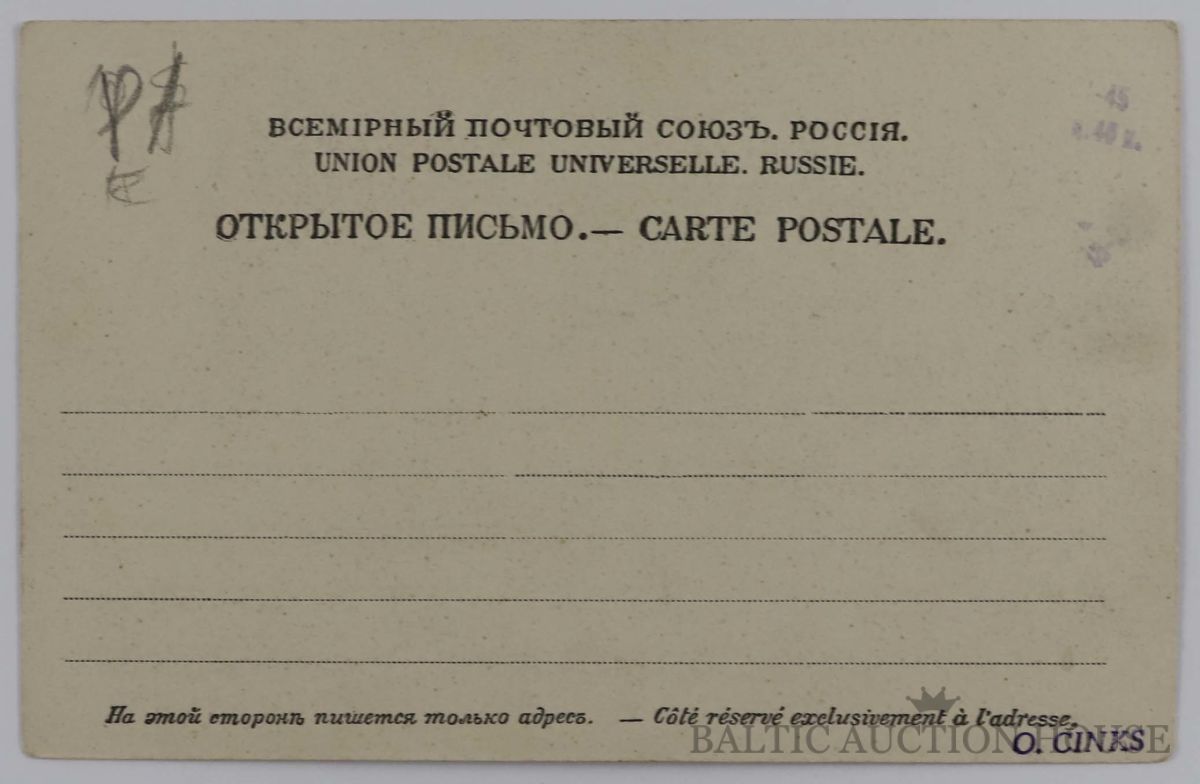 ВСЕМІРНЫЙ ПОЧТОВЫЙ СОЮЗЪ. РОССІЯ.
UNION POSTALE UNIVERSELLE. RUSSIE.
ОТКРЫТОЕ ПИСЬМО.— CARTE POSTALE.
45
На этой сторонѣ пишется только адресъ. — Côté réservé exclusivement à l'adresse.
BALTIC AUCTION HOUSE
O. CINKS